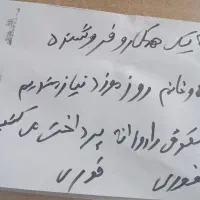 یک همکار و فروشنده
و خانم روز مزد نیازمندیم
حقوق را روزانه پرداخت می کنیم
فوری فوری